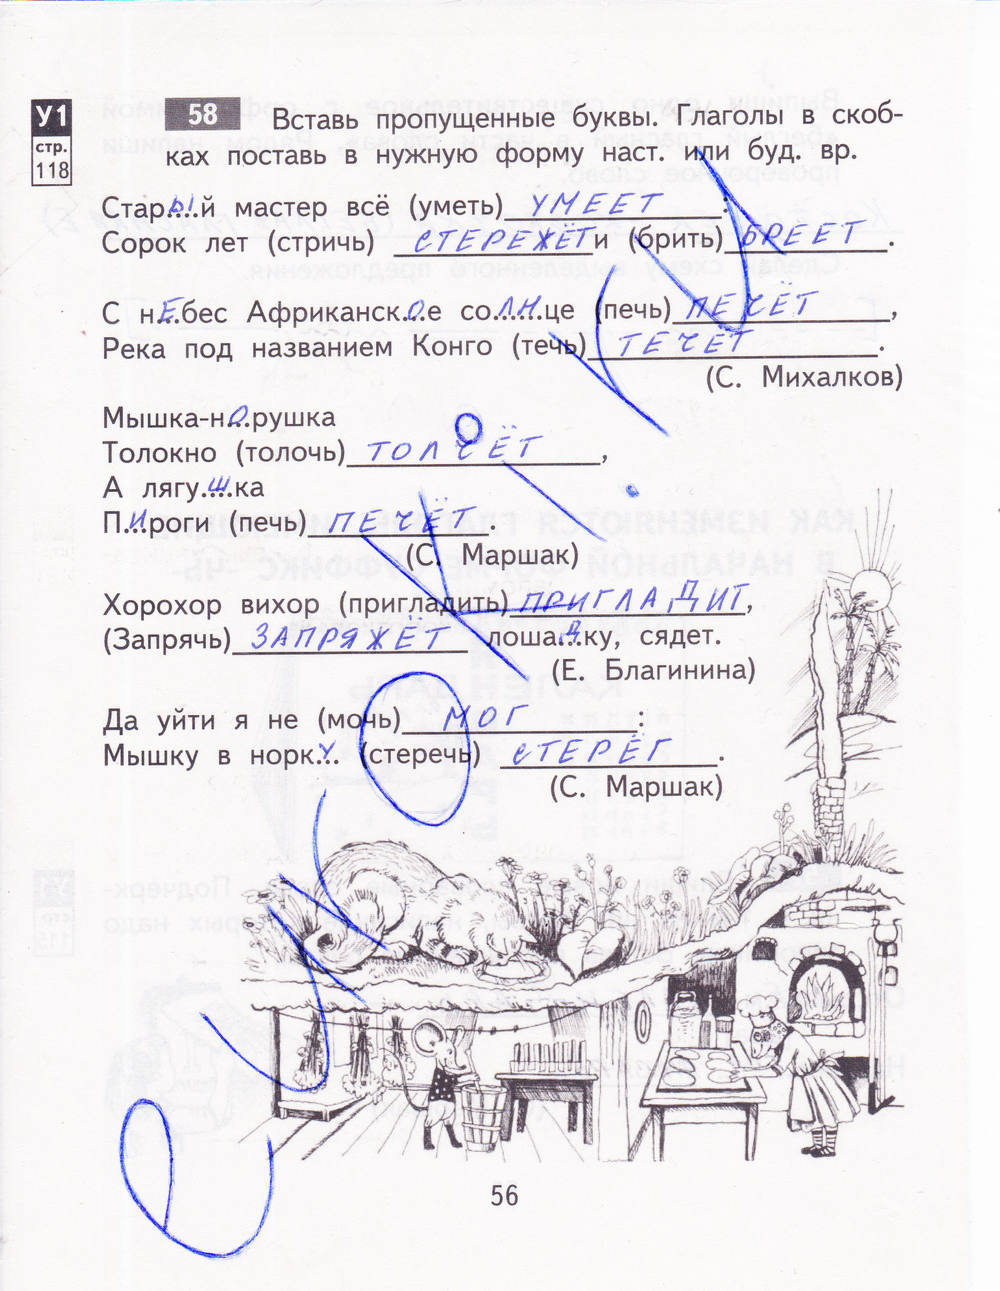 У1
стр.
118
58 Вставь пропущенные буквы. Глаголы в скоб-
ках поставь в нужную форму наст. или буд. вр.
Старый мастер всё (уметь) УМЕЕТ :
Сорок лет (стричь) СТЕРЕЖЁТ и (брить) БРЕЕТ .
С нЕбес АфриканскОе соЛНце (печь) ПЕЧЁТ ,
Река под названием Конго (течь) ТЕЧЕТ .
(С. Михалков)
Мышка-нОрушка
Толокно (толочь) ТОЛЧЁТ ,
А лягушка
ПИроги (печь) ПЕЧЁТ
(С. Маршак)
Хорохор вихор (пригладить) ПРИГЛАДИТ ,
(Запрячь) ЗАПРЯЖЁТ лошаДку, сядет.
(Е. Благинина)
Да уйти я не (мочь) МОГ :
Мышку в норкУ. (стеречь) СТЕРЁГ .
(С. Маршак)
56